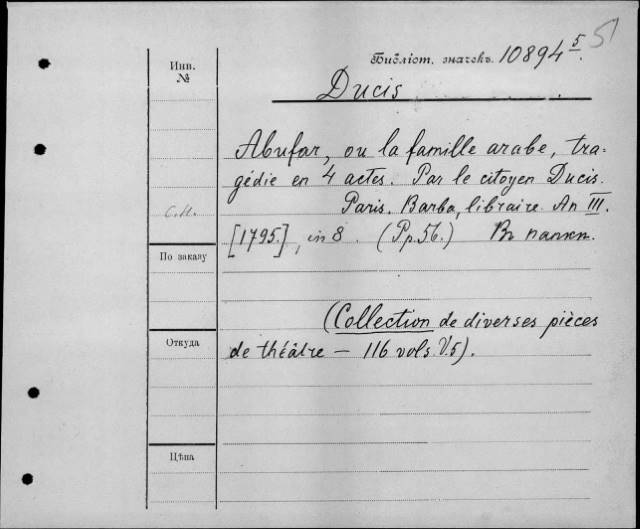 51
Инв.
№
Библіот. значекъ. 10894 5.
Ducis
Abufar, ou la famille arabe, tra=
gédie en 4 actes. Par le citoyen Ducis.
с.п.
Paris. Barba, libraire. An III.
[1795.], in 8. (Pp. 56.) Въ папкѣ.
По заказу
(Collection de diverses pièces
Откуда
de théâtre — 116 vols. V. 5).
Цѣна